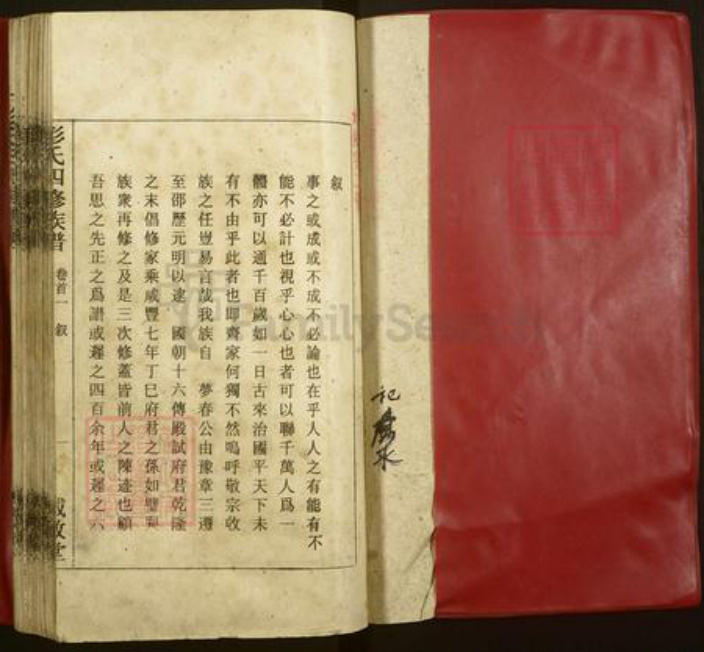 叙
事之或成或不成不必論也在乎人人之有能有不
能不必計也視乎心心也者可以聯千萬人爲一
體亦可以通千百歲如一日古來治國平天下未
有不由乎此者也即齊家何獨不然嗚呼敬宗收
族之任豈易言哉我族自 夢春公由豫章三遷
至邵歷元明以逮 國朝十六傳殿試府君乾隆
之末倡修家乘咸豐七年丁巳府君之孫如璧
族衆再修之及是三次修蓋皆前人之陳迹也顧
吾思之先正之爲譜或遲之四百余年或遲之六
彭氏四修族譜 卷首一 叙
FamilySearch